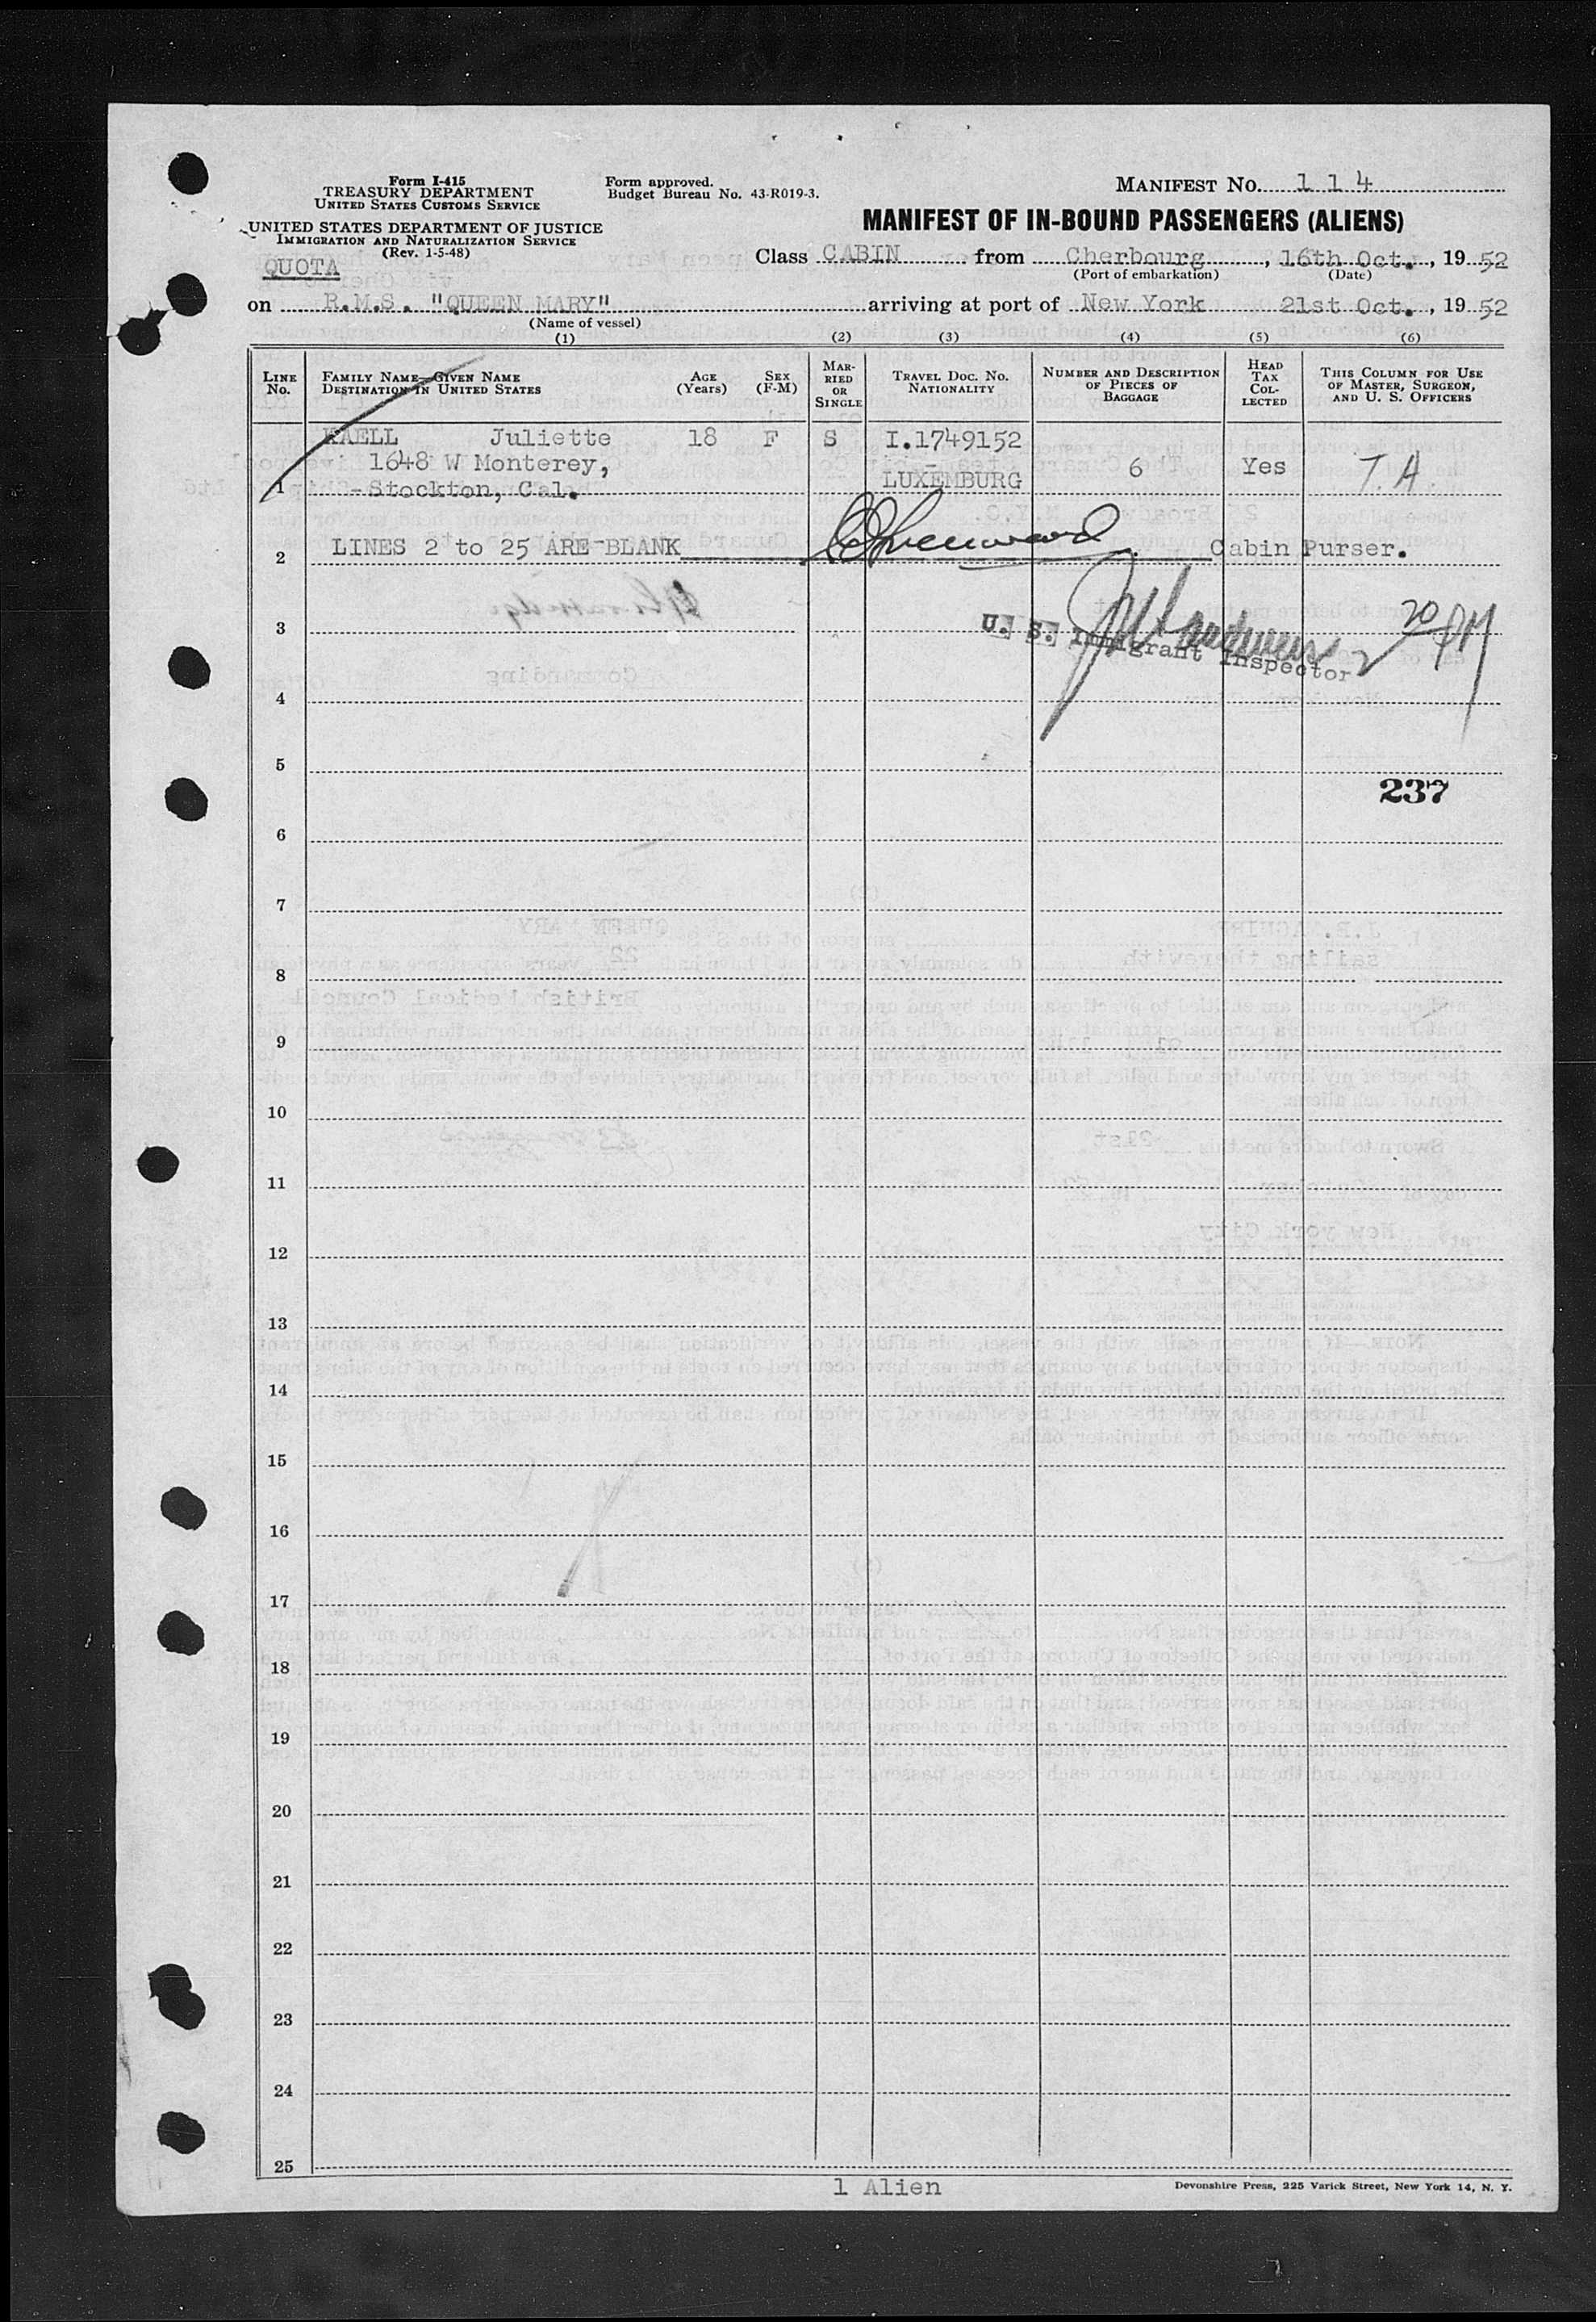 Form I-415
TREASURY DEPARTMENT
UNITED STATES CUSTOMS SERVICE
UNITED STATES DEPARTMENT OF JUSTICE
IMMIGRATION AND NATURALIZATION SERVICE
(Rev. 1-5-48)
QUOTA
Form approved.
Budget Bureau No. 43-R019-3.
MANIFEST NO. 1 1 4
MANIFEST OF IN-BOUND PASSENGERS (ALIENS)
Class CABIN from Cherbourg, 16th Oct., 19 52
(Port of embarkation) (Date)
on R.M.S. "QUEEN MARY" arriving at port of New York 21st Oct., 19 52
(Name of vessel)
(1) (2) (3) (4) (5) (6)
LINE NO. FAMILY NAME—GIVEN NAME DESTINATION IN UNITED STATES AGE (Years) SEX (F-M) MARRIED OR SINGLE TRAVEL DOC. NO. NATIONALITY NUMBER AND DESCRIPTION OF PIECES OF BAGGAGE HEAD TAX COLLECTED THIS COLUMN FOR USE OF MASTER, SURGEON, AND U. S. OFFICERS
KAELL Juliette 18 F S I.1749152
1648 W Monterey, 6 Yes T.A.
1 -Stockton, Cal. LUXEMBURG
2 LINES 2 to 25 ARE BLANK Cabin Purser.
3 U. S. Immigrant Inspector 2 20 PM
4
5
237
6
7
8
9
10
11
12
13
14
15
16
17
18
19
20
21
22
23
24
25
1 Alien
Devonshire Press, 225 Varick Street, New York 14, N. Y.